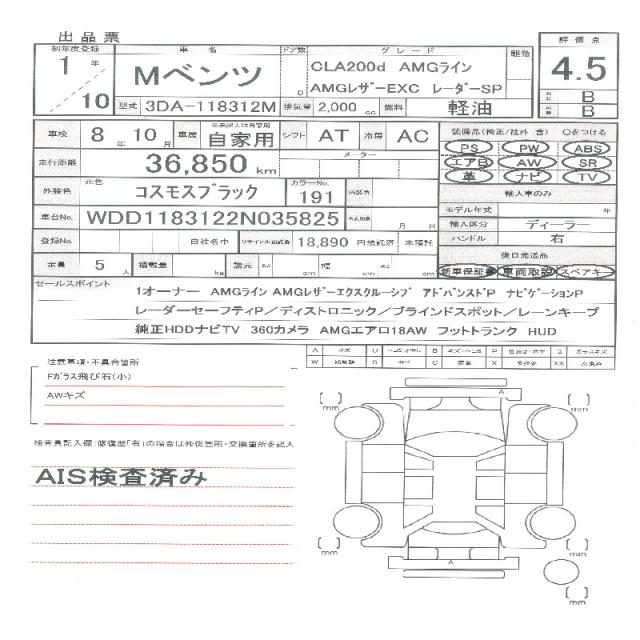 出品票
初年度登録 車名 ドア数 グレード 駆動 評価点
1年 Mベンツ CLA200d AMGライン 4.5
10 D AMGレザーEXC レーダーSP B
型式 3DA-118312M 排気量 2,000 cc 燃料 軽油 B
車検 8年 10月 車歴 自家用 シフト AT 冷房 AC 装備品(純正/社外 含) Oをつける
走行距離 36,850 km メーター PS PW ABS
エアB AW SR
革 ナビ TV
外装色 元色 コスモスブラック カラーNo. 191 内装色 輸入車のみ
車台No. WDD1183122N035825 月 日 モデル年式 年
輸入区分 ディーラー
登録No. 自社名中 リサイクル預託金 18,890 円預託済 未預託 ハンドル 右
定員 5人 積載量 kg 諸元 長さ cm 幅 cm cm 後日発送品
新車保証書 車両取説 スペアキー
セールスポイント
1オーナー AMGライン AMGレザーエクスクルーシブ アドバンストP ナビゲーションP
レーダーセーフティP/ディストロニック/ブラインドスポット/レーンキープ
純正HDDナビTV 360カメラ AMGエアロ18AW フットトランク HUD
A キズ U B P G ガラスキズ
W S サビ C X XX
注意事項・不具合箇所
Fガラス飛び石(小)
AWキズ
検査員記入欄:修復歴「有」の場合は修復箇所・交換箇所を記入
AIS検査済み
mm mm
A
mm mm
A
mm